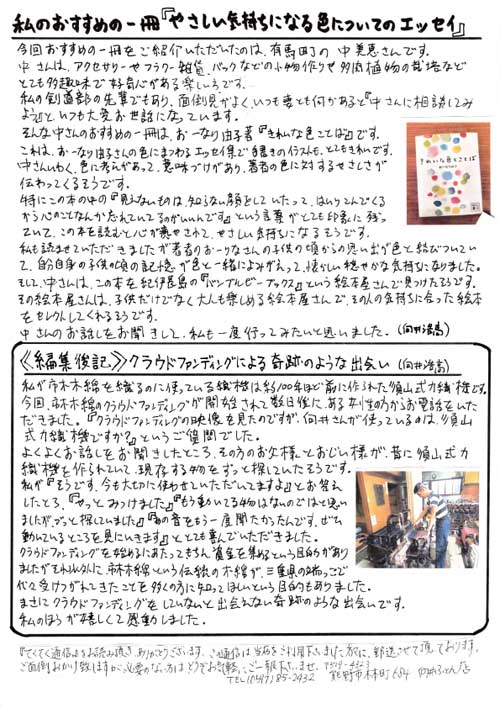 私のおすすめの一冊『やさしい気持ちになる色についてのエッセイ』
今回おすすめの一冊をご紹介いただいたのは、有馬町の 中美恵さんです。
中さんは、アクセサリーやフラワー雑貨、バックなどの小物作りや多肉植物の栽培など
とても多趣味で好奇心がある楽しい方です。
私の創造部の先輩でもあり、面倒見がよく、いつも妻とも何かあると『中さんに相談してみ
よう』と、いつも大変お世話になっています。
そんな中さんのおすすめの一冊は、おーなり由子著『きれいな色とことば』です。
これは、おーなり由子さんの色にまつわるエッセイ集で手書きのイラストも、とてもきれいです。
中さんいわく、色に考えがあって、意味づけがあり、著者の色に対するやさしさが
伝わってくるそうです。
特にこの本の中の『見えないものは、知らない顔をしていたって、はいりこんでくる
から心のことなんか忘れているのがいいんです』という言葉がとても印象に残っ
ていて、この本を読むと心が癒やされて、やさしい気持ちになるそうです。
私も読ませていただきましたが著者のおーなりさんの子供の頃からの思い出が色と結びついてい
て、自分自身の子供の頃の記憶が色と一緒によみがえって、懐かしい穏やかな気持ちになりました。
そして、中さんは、この本を紀伊長島の『バンブルビーブックス』という絵本屋さんで見つけたそうです。
その絵本屋さんは、子供だけでなく大人も楽しめる絵本屋さんで、その人の気持ちに合った絵本
をセレクトしてくれるそうです。
中さんのお話しをお聞きして、私も一度行ってみたいと思いました。(向井浩高)
きれいな色とことば
《編集後記》クラウドファンディングによる奇跡のような出会い (向井浩高)
私が市木木綿を織るのに使っている織機は約100年ほど前に作られた須山式力織機です。
今回、市木木綿のクラウドファンディングが開始されて数日後に、ある男性の方からお電話をいた
だきました。『クラウドファンディングの映像を見たのですが、向井さんが使っているのは、須山
式力織機ですか?』というご質問でした。
よくよくお話しをお聞きしたところ、その方のお父様とおじい様が、昔に須山式力
織機を作られていて、現存する物をずっと探していたそうです。
私が『そうです、今も大切に使わせていただいてますよ』とお答え
したところ、『やっとみつけました』『もう動いてる物はないのではと思い
ましたが、ずっと探していました』『あの音をもう一度聞きたかったんです、ぜひ
動いているところを見にいきます』ととても喜んでいただきました。
クラウドファンディングを始めるにあたってもちろん資金を集めるという目的があり
ましたがそれ以外に、市木木綿という伝統の木綿が、三重県の端っこで
代々受けつがれてきたことを多くの方に知ってほしいという目的もありました。
まさにクラウドファンディングをしていないと出会えない奇跡のような出会いです。
私のほうが嬉しくて感動しました。
『てくてく通信』をお読み頂き、ありがとうございます。この通信は当店をご利用下さいました方に、郵送させて頂いております。
ご面倒おかけ致しますが、必要のない方は どうぞお気軽に ご一報下さいませ。〒519-4323
TEL(0597)85-2432 熊野市木本町684 向井ふとん店